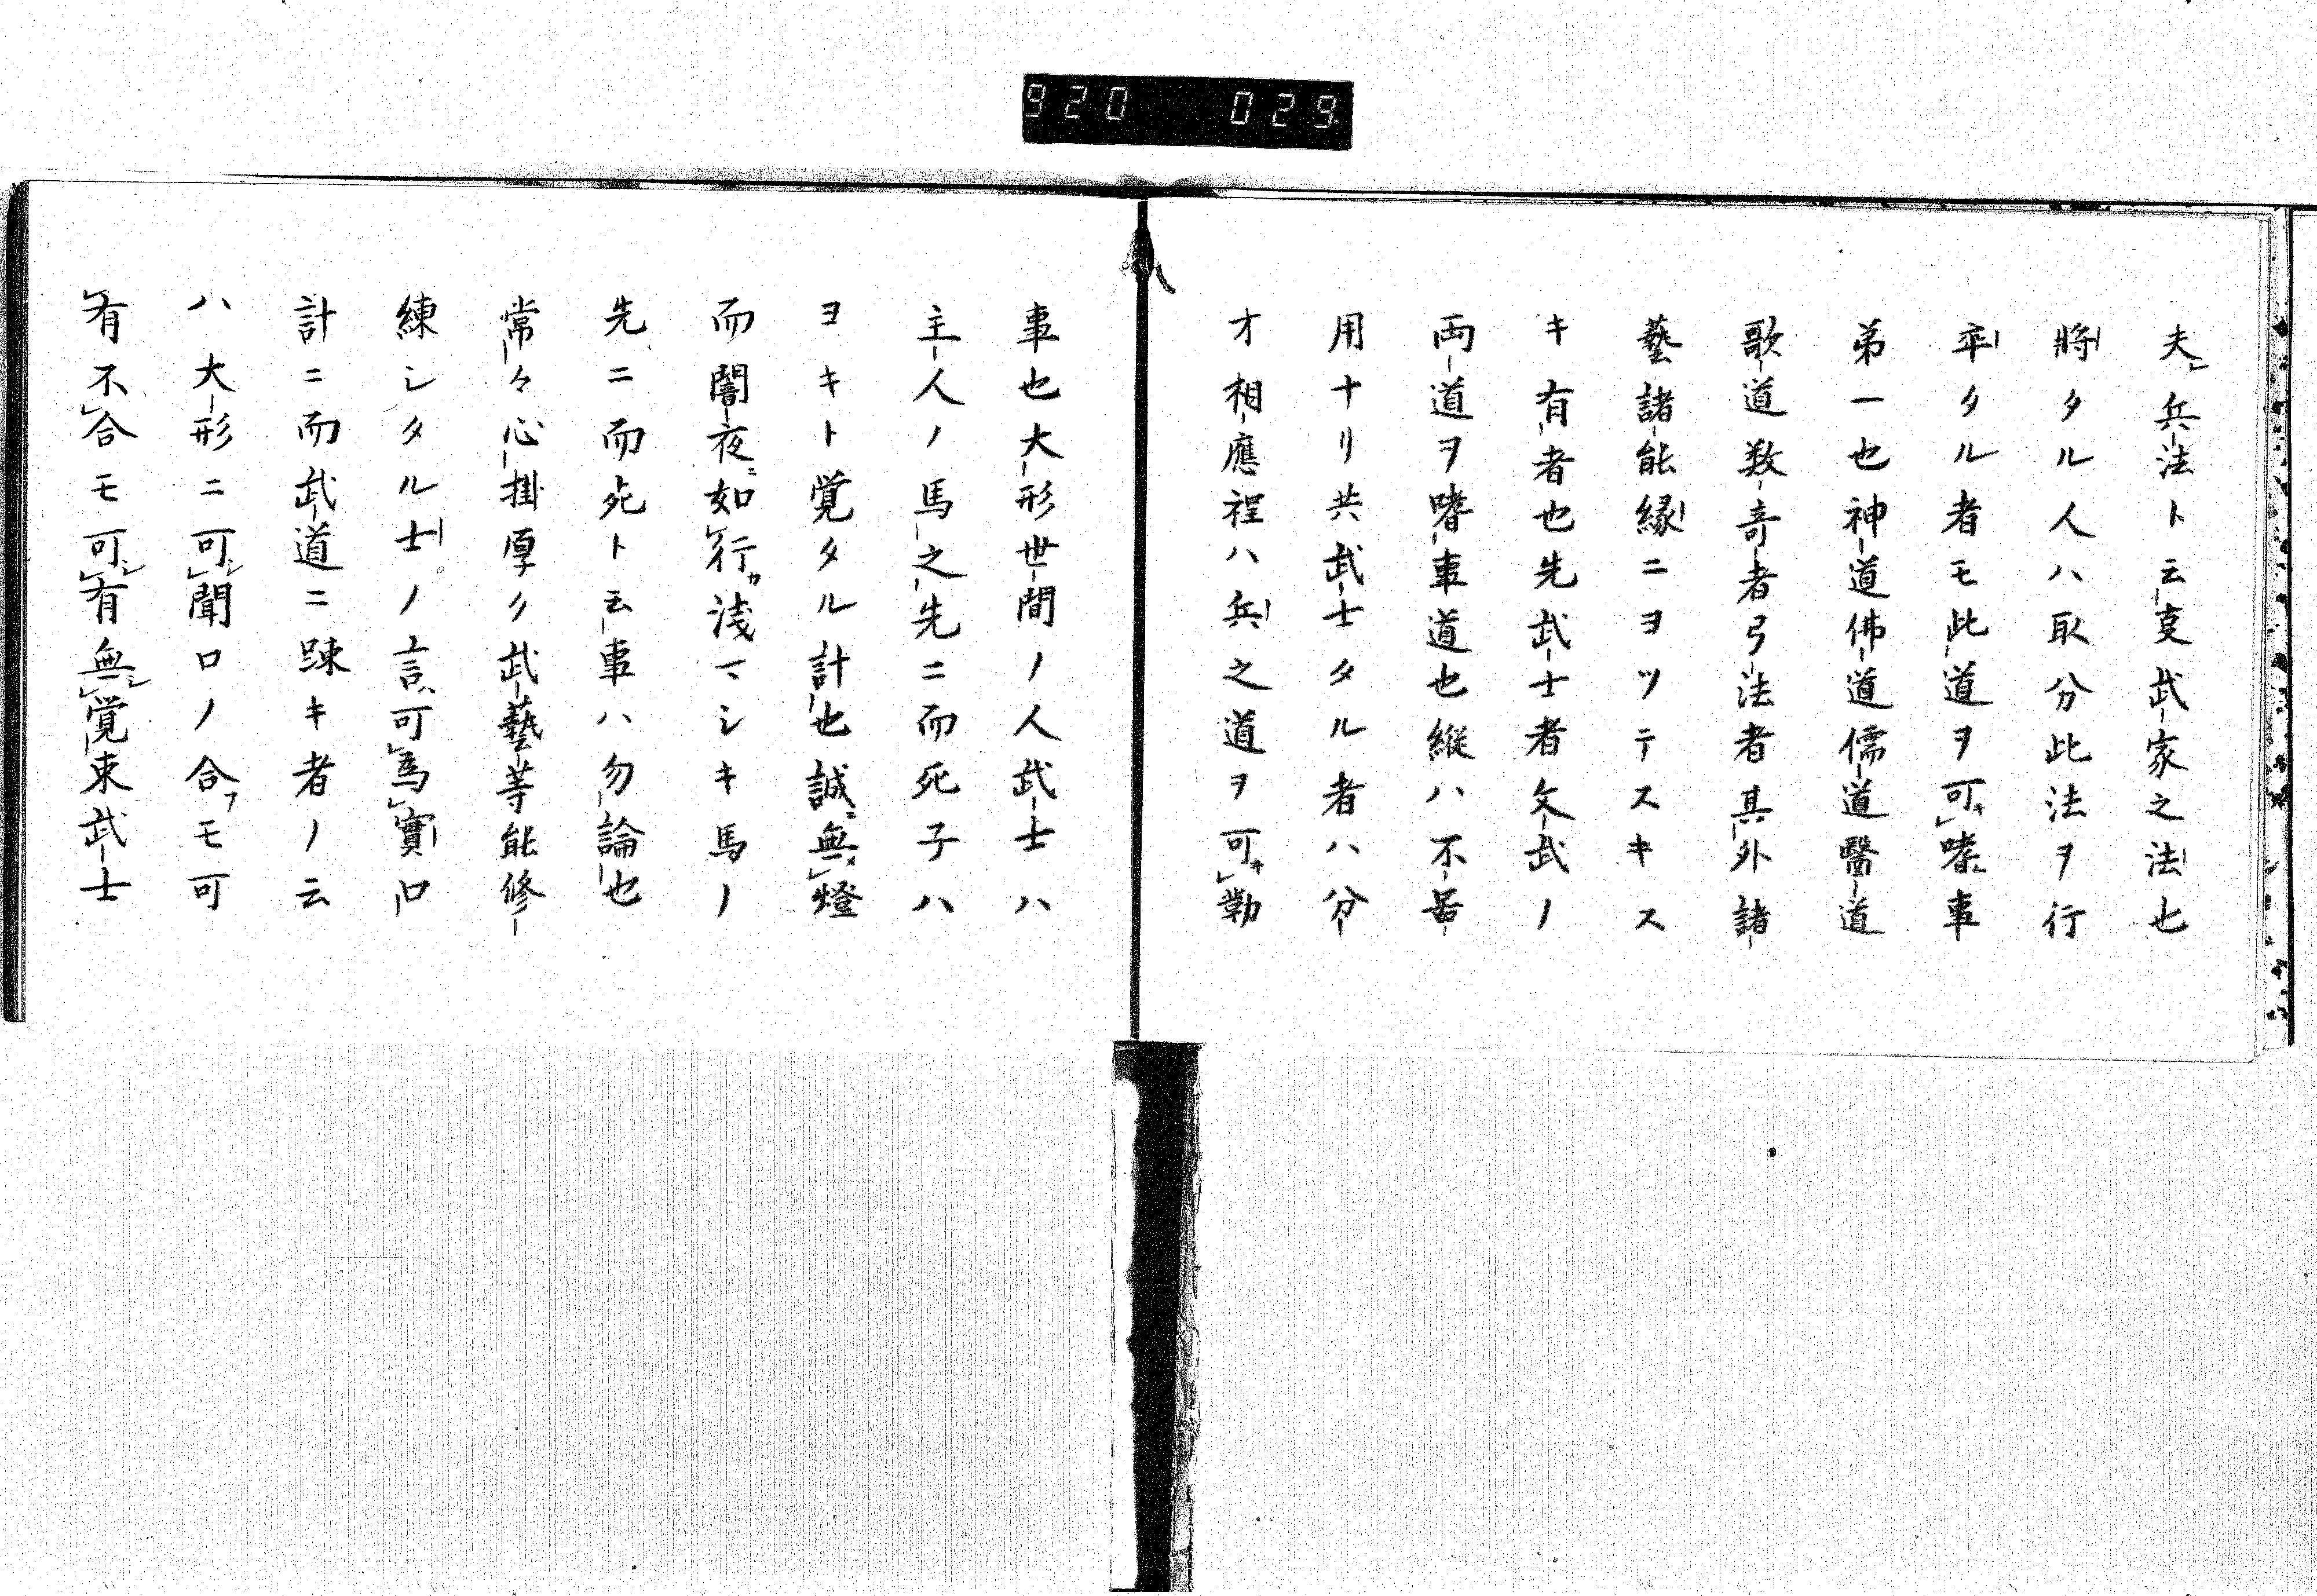 920 029
夫レ兵法ト云夏武家之法也
將タル人ハ取分此法ヲ行
卒タル者モ此道ヲ可キ嗜ム事
第一也神道佛道儒道醫道
歌道数奇者弓法者其外諸
藝諸能縁ニヨツテスキス
キ有者也先武士者文武ノ
両道ヲ嗜事道也縦ハ不器
用ナリ共武士タル者ハ分
才相應程ハ兵之道ヲ可キ勤
事也大形世間ノ人武士ハ
主人ノ馬之先ニ而死子ハ
ヨキト覚タル計也誠ニ無メ燈
而闇夜ニ如行カ浅マシキ馬ノ
先ニ而死ト云事ハ勿論也
常々心掛厚ク武藝等能修
練シタル士ノ言ハ可為實口
計ニ而武道ニ踈キ者ノ云
ハ大形ニ可シ聞口ノ合フモ可
有不合モ可シ有無シ覚束武士